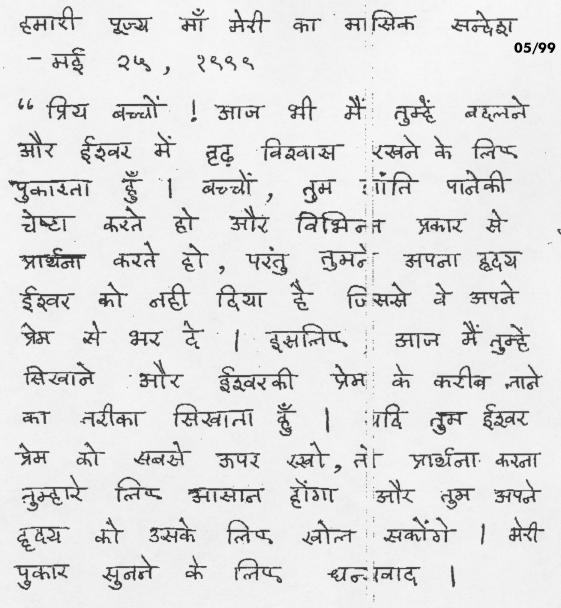 हमारी पूज्य माँ मेरी का मासिक सन्देश
05/99
- मई २५, १९९९
“ प्रिय बच्चों ! आज भी मैं तुम्हें बदलने
और ईश्वर में दृढ़ विश्वास रखने के लिए
पुकारता हुँ | बच्चों, तुम शांति पानेकी
चेष्टा करते हो और विभिन्न प्रकार से
प्रार्थना करते हो, परंतु तुमने अपना हृदय
ईश्वर को नही दिया है जिससे वे अपने
प्रेम से भर दे | इसलिए आज मैं तुम्हें
सिखाने और ईश्वरकी प्रेम के करीब लाने
का तरीका सिखाता हुँ | यदि तुम ईश्वर
प्रेम को सबसे ऊपर रखो, तो प्रार्थना करना
तुम्हारे लिए आसान होंगा और तुम अपने
हृदय को उसके लिए खोल सकोंगे | मेरी
पुकार सुनने के लिए धन्यवाद |